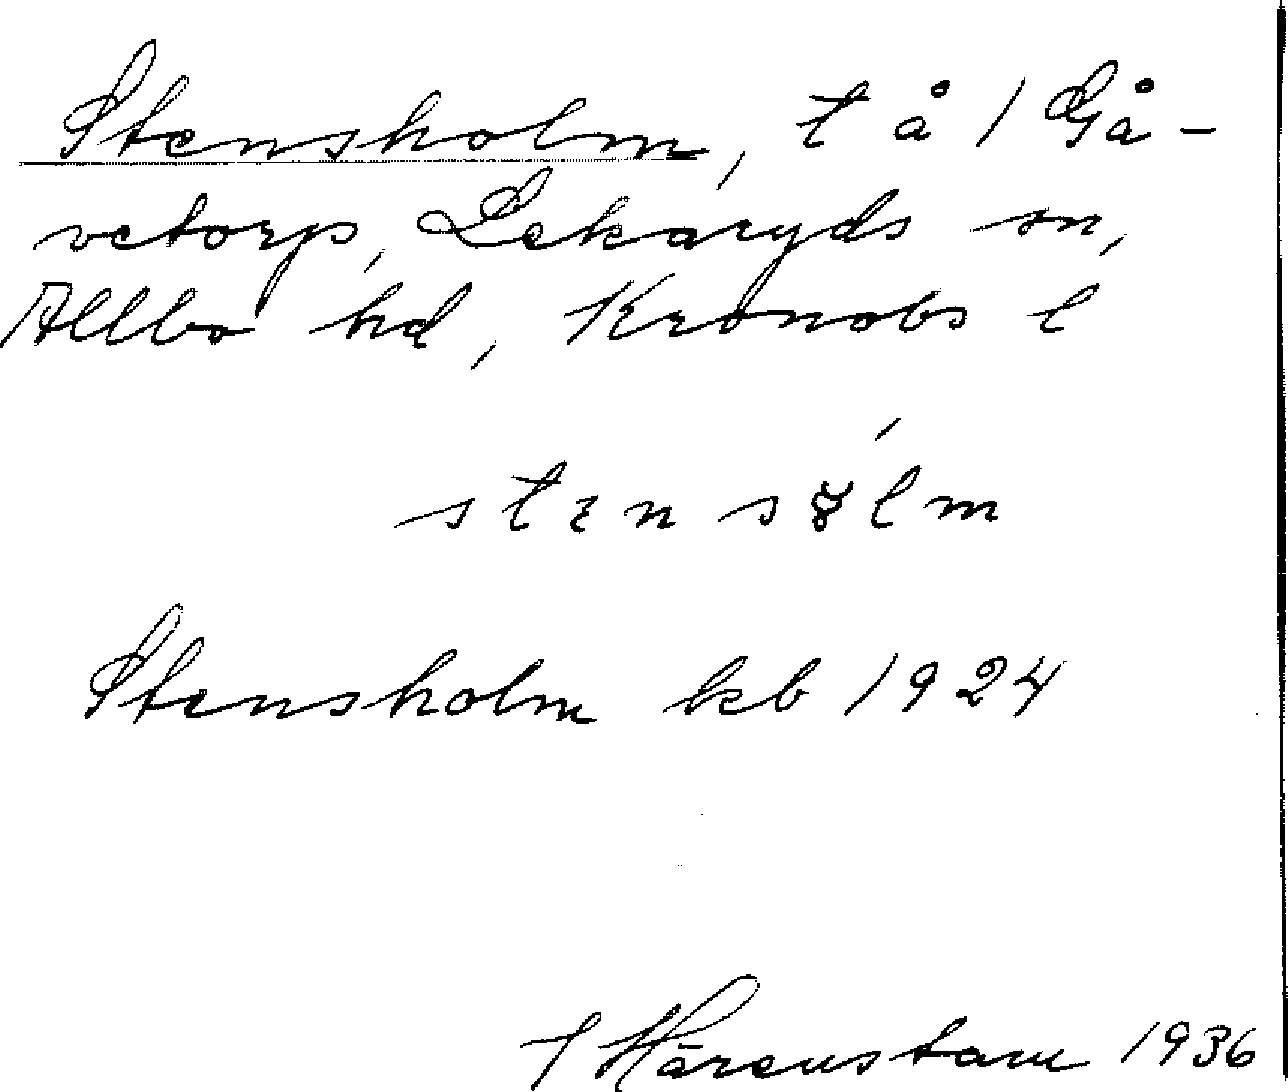 Stensholm, t å 1 Gå-
vetorp, Lekaryds sn,
Allbo hd, Kronobs l
stensölm
Stensholm kb 1924
Härenstam 1936